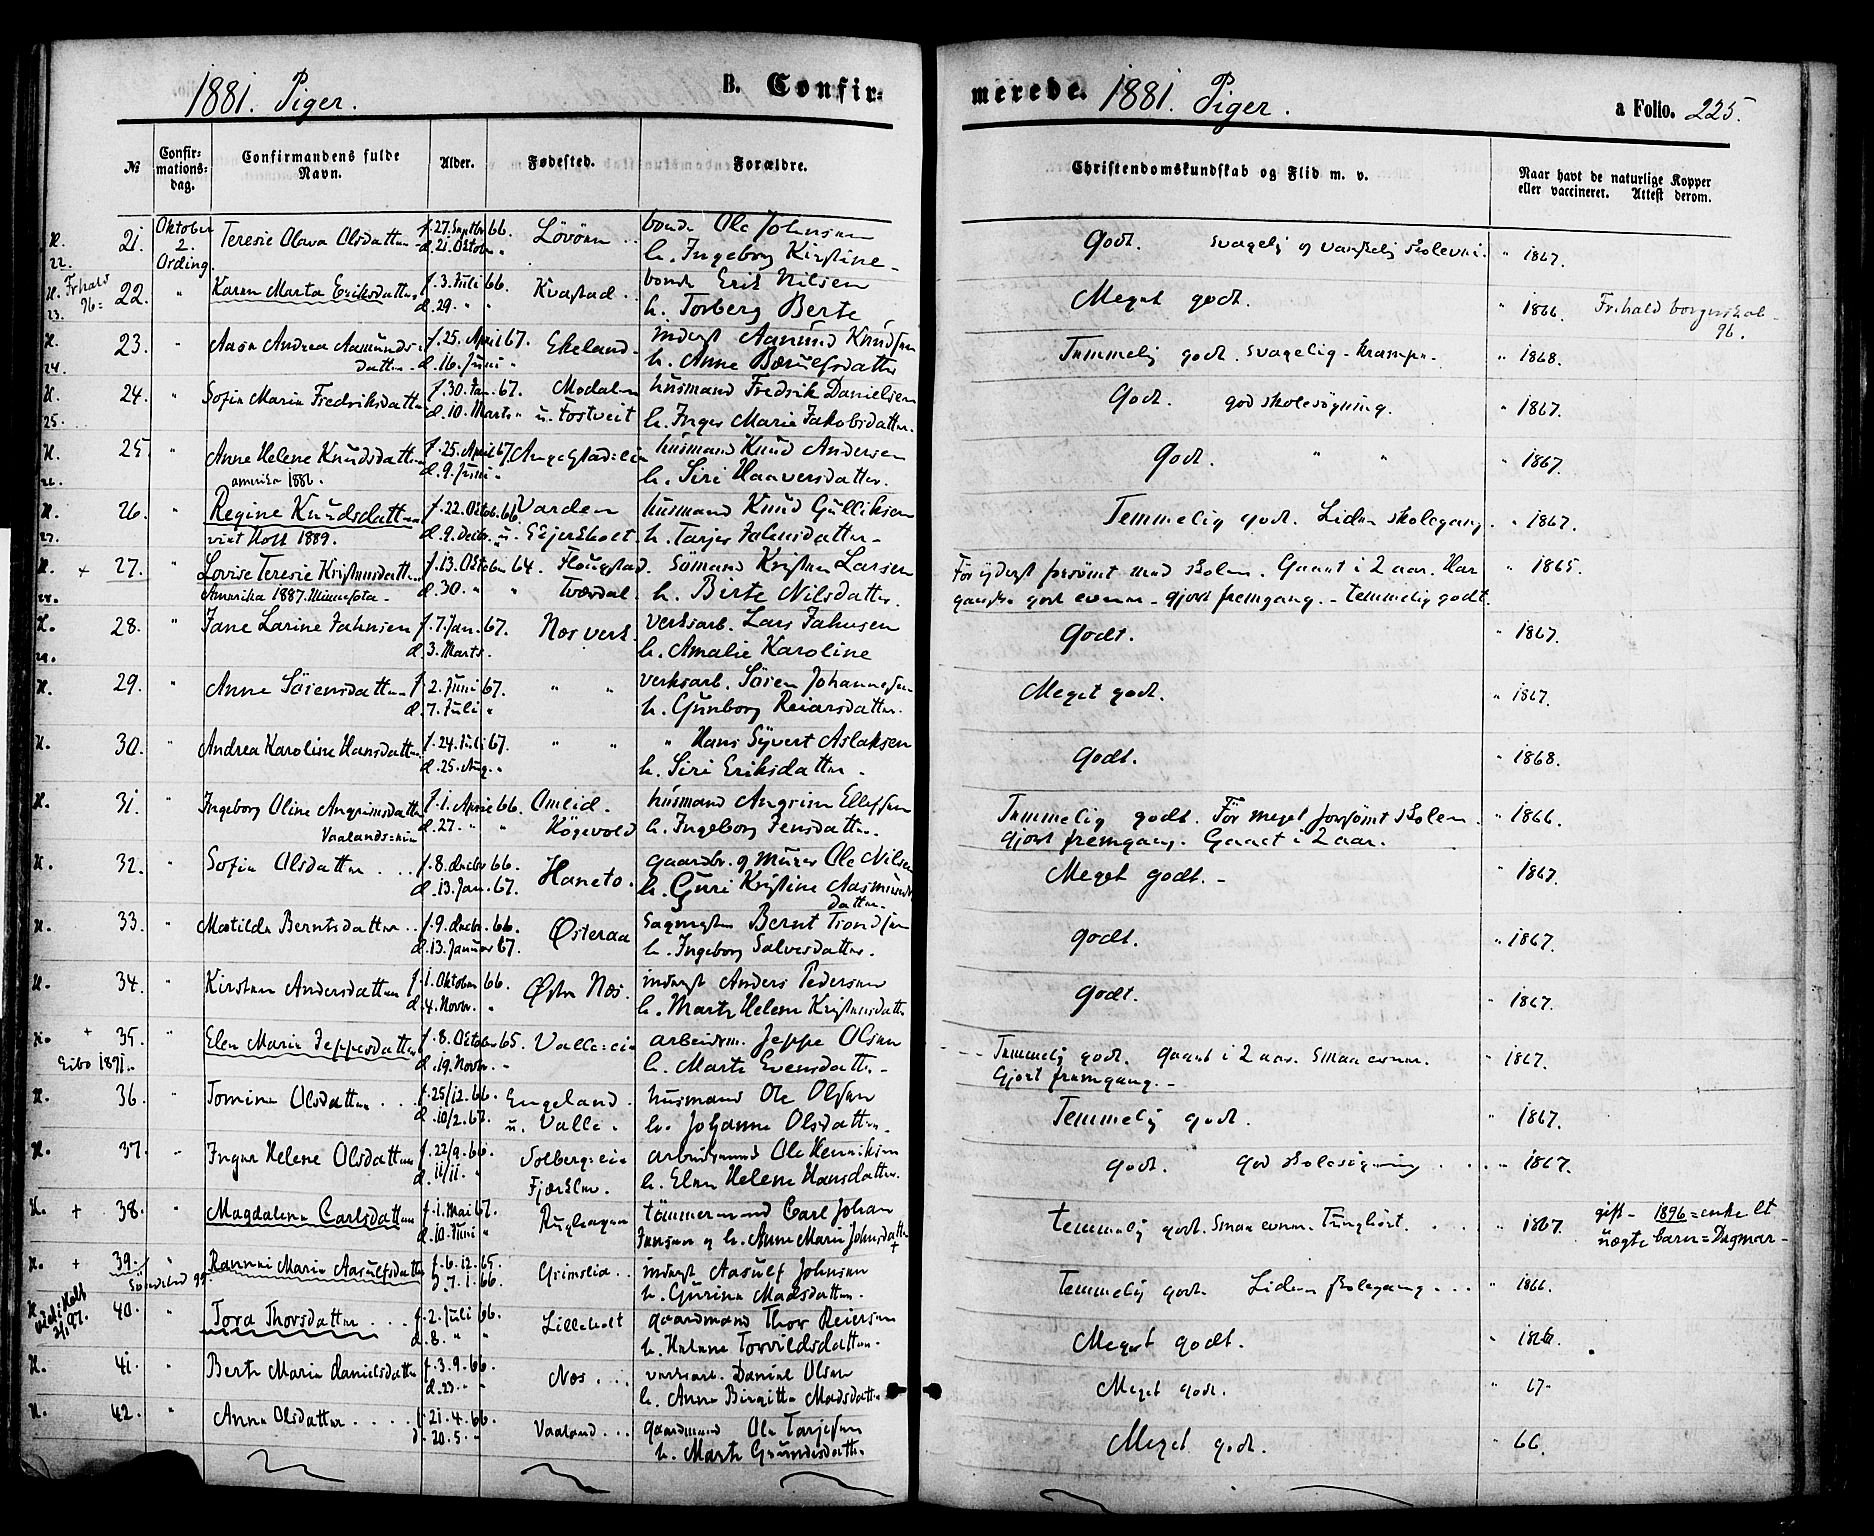 1881. Piger. B. Confir=
merede. 1881. Piger. a Folio. 225.
№ Confir=mations=dag. Confirmandens fulde Navn. Alder. Fødested. Forældre. Christendomskundskab og Flid m. v. Naar havt de naturlige Kopper eller vaccineret. Attest derom.
H. 21. Oktober Teresie Olava Olsdatter f. 27. Septbr 66. Lövöen .. bonde Ole Johnsen Godt. Svagelig og vanskelig skolevei. " 1867.
22. 2. Ording. d. 21. Oktober " h. Ingeborg Kirstine
H. Fr.hald 22. " Karen Marta Eriksdatter f. 3. Juli 66. Kvastad .. bonde Erik Nilsen Meget godt. " 1866. Fr.hald borgerskab
23. 96= d. 29. " " h. Torberg Berte 96.
H. 23. " Aasa Andrea Aamunds= f. 25. April 67. Ekeland inderst Aamund Knudsen Temmelig godt. svagelig - krampe. " 1868.
24. datter d. 16. Juni " h. Anne Bærulfsdatter
H. 24. " Sofie Marie Fredriksdatter f. 30. Jan. 67. Modalen husmand Fredrik Danielsen Godt. god skolesøgning. " 1867.
25. d. 10. Marts " u. Fostveit h. Inger Marie Jakobsdatter.
H. 25. " Anne Helene Knudsdatter f. 25. April 67. Angelstad=eie husmand Knud Andersen Godt. " " " 1867.
26. amerika 1886. d. 9. Juni " h. Siri Haaversdatter.
H. 26. " Regine Knudsdatter f. 22. Oktob. 66. Varden husmand Knud Gulliksen Temmelig godt. Liden skolegang. " 1867.
27. viet Holt 1889. d. 9. Decbr. u. Gjerskolt. h. Tarjer Jahnsdatter
H. + 27. " Lovise Teresie Kristensdatter f. 13. Oktober 64. Flougstad. Sömand Kristen Larsen För yderst forsömt med skolen. Gaaet i 2 aar. Har " 1865.
28. Amerika 1887. Minnesota d. 30. " " Tverdal. h. Birte Nilsdatter. ganske gode evner - gjort fremgang. - temmelig godt.
H. 28. " Jane Larine Jahnsen f. 7. Jan. 67. Nes verk. verksarb. Lars Jahnsen Godt. " 1867.
29. d. 3. Marts. h. Amalie Karoline
H. 29. " Anne Sörensdatter f. 2. Juni 67. " " verksarb. Sören Johannesen Meget godt. " 1867.
d. 7. Juli " h. Gunborg Reiarsdatter.
H. 30. " Andrea Karoline Hansdatter f. 24. Juli 67. " " " Hans Syvert Aslaksen Godt. " 1868.
d. 25. Aug. " h. Siri Eriksdatter.
H. 31. " Ingeborg Oline Angrimsdatter f. 1. April 66. Omlid. husmand Angrim Ellefsen Temmelig godt. För meget forsömt skolen. " 1866.
Vaalands=eie d. 27. " " Kögevold h. Ingeborg Jensdatter. gjort fremgang. Gaaet i 2 aar.
H. 32. " Sofie Olsdatter ... f. 8. decbr 66. Haneto. gaardbr. og murer Ole Nilsen Meget godt. - " 1867.
d. 13. Jan. 67. h. Guri Kristine Aasmunds datter.
H. 33. " Matilde Berntsdatter .. f. 9. decbr. 66. Østeraa Sagmester Bernt Trondsen Godt. " 1867.
d. 13. Januar 67. h. Ingeborg Salvesdatter.
H. 34. " Kirsten Andersdatter f. 1. Oktober 66. Østre Næs. inderst Anders Pedersen Godt. " 1867.
d. 4. Novbr. " h. Marte Helene Kristensdatter
H. + 35. " Elen Marie Jeppesdatter f. 8. Oktober 65. Valle=eie arbeidsm. Jeppe Olsen Temmelig godt. Gaaet i 2 aar. Smaa evner. " 1867.
Eibo 1891. d. 19. Novbr. " h. Marte Evensdatter Gjort fremgang. -
H. 36. " Tomine Olsdatter ... f. 25/12. 66. Engeland. husmand Ole Olsen Temmelig godt. " 1867.
d. 10/2. 67. u. Valle. h. Johanne Olsdatter
H. 37. " Inger Helene Olsdatter f. 22/9. 66. Solberg=eie arbeidsmand Ole Henriksen Godt. God skolesögning ... " 1867.
d. 11/11. " Fjærkleiv. h. Elen Helene Hansdatter.
H. + 38. " Magdalene Carlsdatter f. 1. Mai 67. Rughagen tömmermand Carl Johan temmelig godt. Smaa evner. Tunghört. ... " 1867. gift - 1896 = enke et
d. 10. Juni " Jensen og h. Anne Marie Johnsdatter + uægte barn = Dagmar -
H. + 39. " Rannei Marie Aasulfsdatter f. 6. 12. 65. Grimslia .. inderst Aasulf Johnsen Temmelig godt. Liden skolegang ... " 1866.
Söndeled 99. D. 7. 1. 66. h. Gurine Madsdatter.
H. viet Holt 40. " Tora Thorsdatter ... f. 2. Juli 66. Lilleholt gaardmand Thor Reiersen Meget godt. " 1866.
2/1 97. d. 8. " " h. Helene Torvildsdatter.
H. 41. " Berte Marie Danielsdatter f. 3. 9. 66. Næs ... verksarb. Daniel Olsen Meget godt. " 67.
d. 23. " " h. Anne Birgitte Madsdatter
H. 42. " Anne Olsdatter .... f. 21. 4. 66. Vaaland ... gaardmand Ole Tarjesen Meget godt. " 66.
d. 20. 5. " h. Marte Gundersdatter